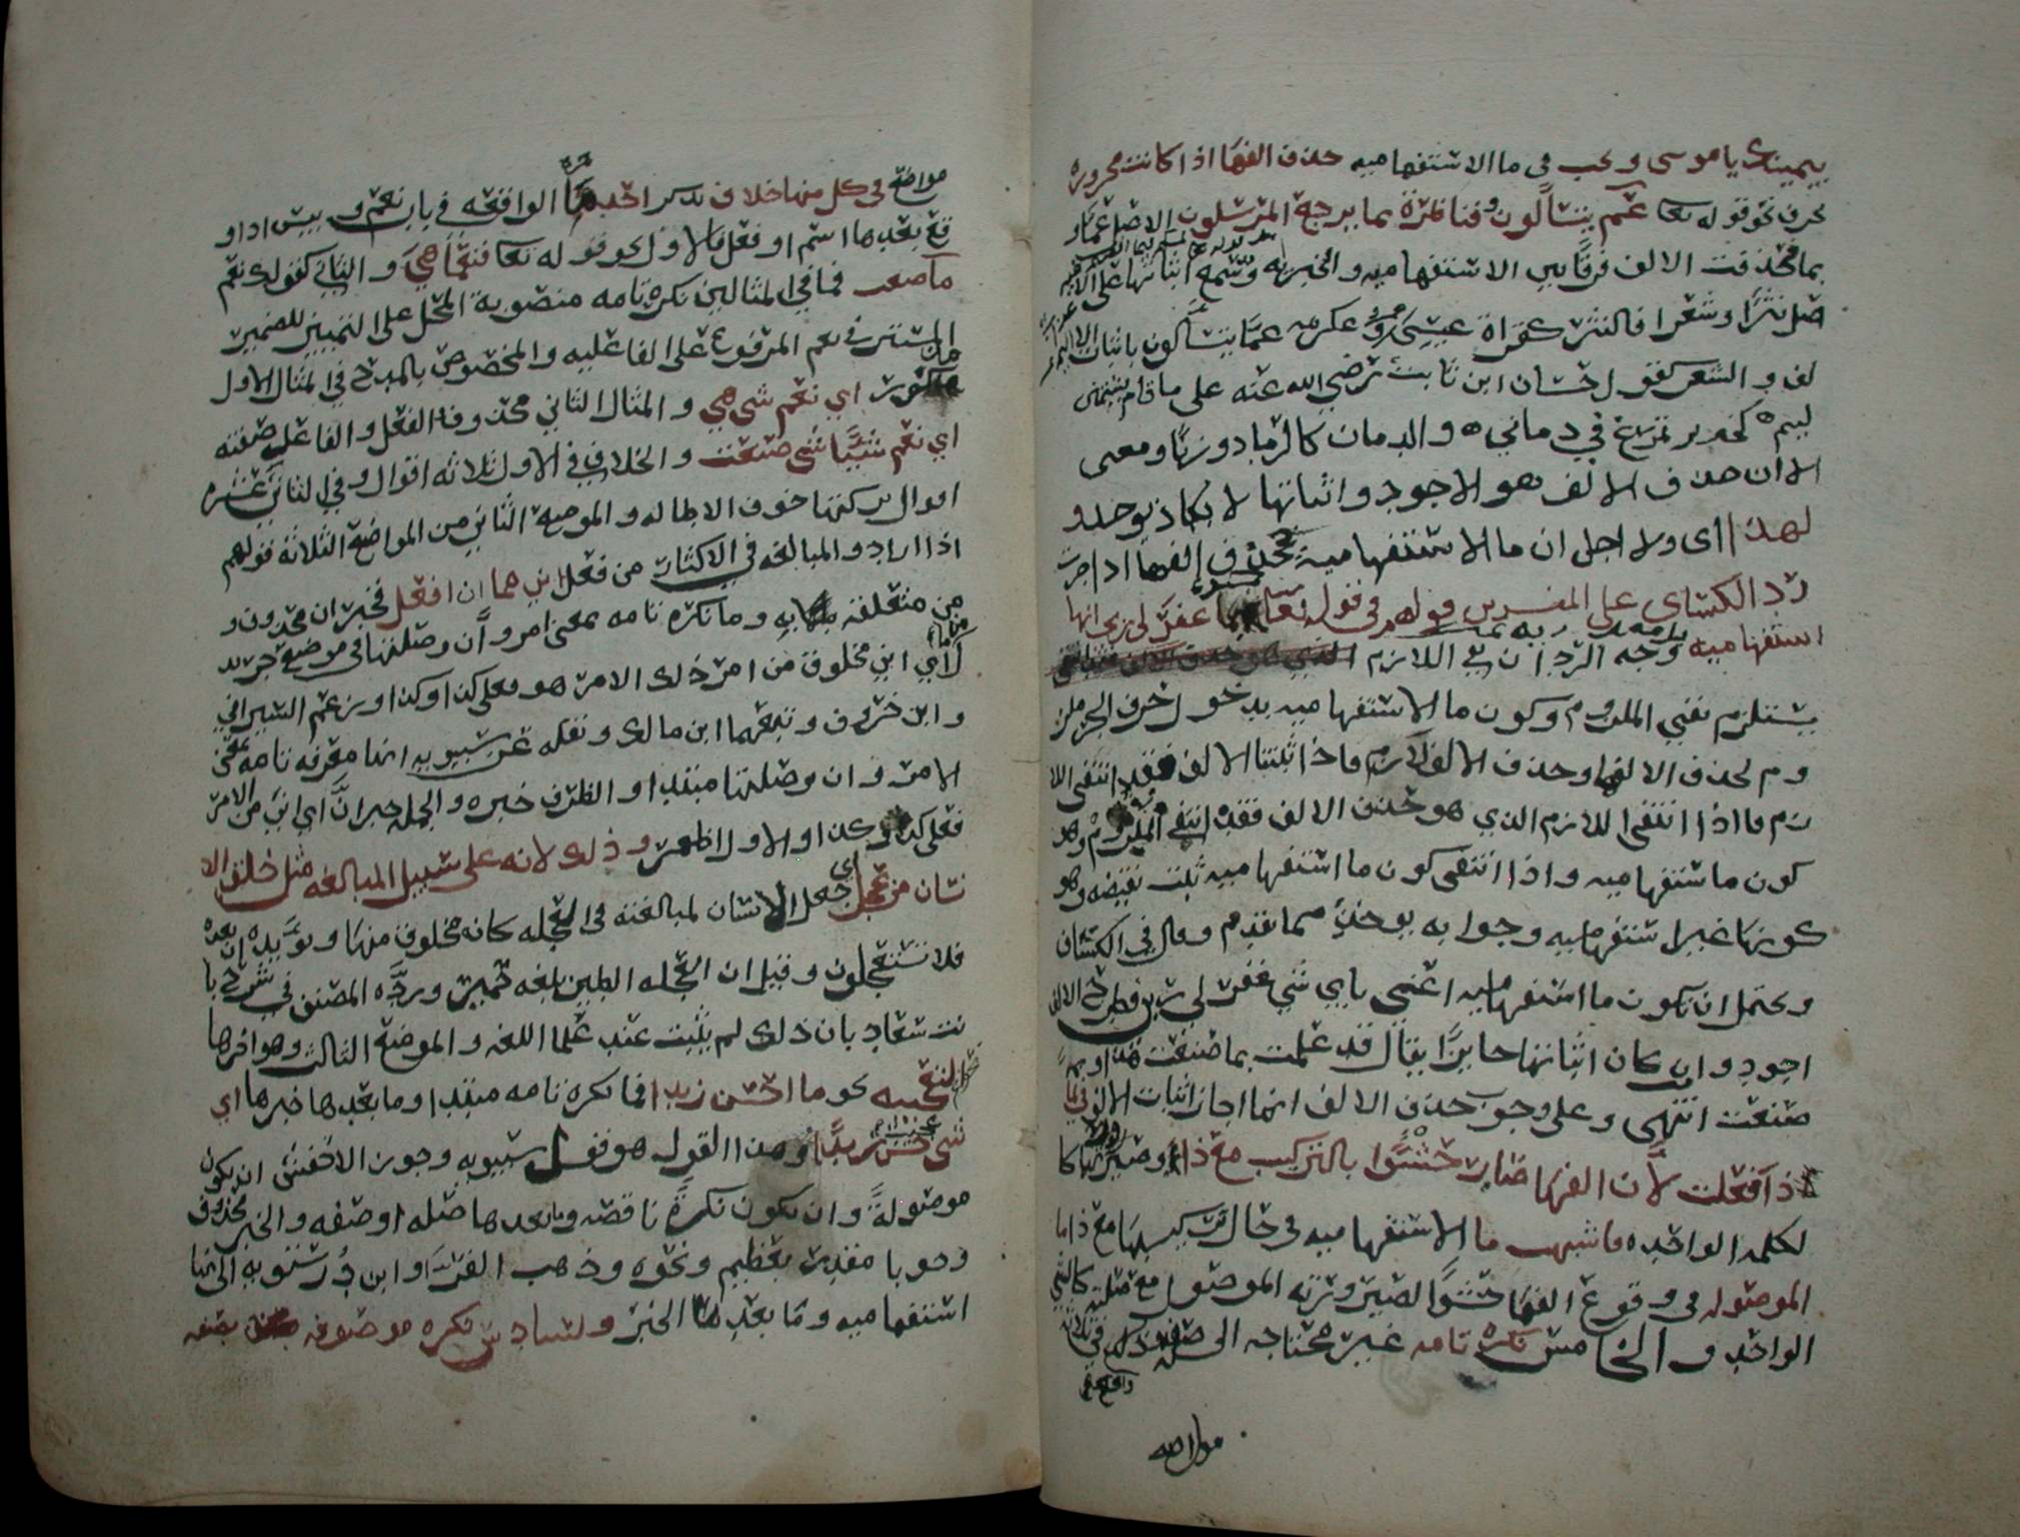 بيمينك يا موسى ويجب في ما الاستفهاميه حذف الفها اذا كانت مجروره
بحرف نحو قوله تعا عم يتسآلون وفناظرة بما يرجع المرسلون الاصل عما و
بما فحذفت الالف فرقا بين الاستفهاميه والخبريه وسمع اثباتها على الا
صل نثرا وشعرا فالنثر كقراة عيسى وعكرمه عما يتسآلون باثبات الا
لف والشعر كقول حسان ابن ثابت رضي الله عنه على ما قام يشتمني
ليم كخنزير تمرغ في دماني ه والدمان كالرماد وزنا ومعنى
الا ان حذف الالف هو الاجود واثباتها لا يكاد يوجد و
لهذا اى ولاجل ان ما الاستفهاميه يحذف الفها اذا جرت
رد الكساى على المفسرين قولهم في قوله تعا بما غفر لي ربي انها
استفهاميه وجه الرد ان نفي اللازم
يستلزم نفي الملزوم وكون ما الاستفهاميه بدخول حرف الجر ملز
وم لحذف الالف وحذف الالف لازم فاذا ثبتت الالف فقد انتفى اللا
زم فاذا انتفى اللازم الذي هو حذف الالف فقد انتفى الملزوم وهو
كون ما ستفهاميه واذا انتفى كون ما استفهاميه ثبت نقيضه وهو
كونها غير استفهاميه وجوابه يوخذ مما تقدم وقال في الكشاف
ويحتمل ان تكون ما استفهاميه اعني باي شي غفر لي ربي فطرح الالف
اجود وان كان اثباتها جايزا يقال قد علمت بما صنعت هذا وبم
صنعت انتهى وعلى وجوب حذف الالف انما اجاز اثبات الالف في لما
ذا فعلت لان الفها صارت حشوا بالتركيب مع ذا وصيرورتها كا
لكلمه الواحده فاشبهت ما الاستفهاميه في حال تركيبها مع ذا ما
الموصوله في وقوع الفها حشوا لصيرورته الموصول مع صلته كالشي
الواحد والخامس نكره تامه غير محتاجه الى صفه وذلك في ثلاثة
مواضع
مواضع في كل منها خلاف يذكر احدها الواقعه في باب نعم وبيس اذا و
قع بعدها اسم او فعل فالاول نحو قوله تعا فنعما هي والثاني كقولك نعم
ما صنعت فما في المثالين نكره تامه منصوبة المحل على التمييز للضمير
المستتر في نعم المرفوع على الفاعليه والمخصوص بالمدح في المثال الاول
مذكور اي نعم شي هي والمثال الثاني محذوف والفعل والفاعل صفته
اي نعم شييا شي صنعت والخلاف في الاول ثلاثه اقوال وفي الثاني عشره
اقوال تركتها خوف الاطاله والموضع الثاني من المواضع الثلاثة قولهم
اذا ارادو المبالغه في الاكثار من فعل اني مما ان افعل فخبر ان محذوف و
من متعلقة به وما نكره تامه بمعنى امر وأن وصلتها في موضع جر بد
لا اي اني مخلوق من امر ذلك الامر هو فعلى كذا وكذا وزعم السيرافي
وابن خروف وتبعهما ابن مالك ونقله عن سيبويه انها معرفه تامه بمعنى
الامر وان وصلتها مبتدا والظرف خبره والجمله خبر انّ اي اني من الامر
فعلى كذا وكذا والاول اظهر وذلك لانه على سبيل المبالغه مثل خلق الا
نسان من عجل جعل الانسان لمبالغته في العجله كانه مخلوق منها ويويده ان بعده
فلا تستعجلون وقيل ان العجله الطين بلغه حمير ورده المصنف في شرح با
نت سعاد بان ذلك لم يثبت عند علما اللغه والموضع الثالث وهو اخرها
التعجبيه نحو ما احسن زيدا فما نكره تامه مبتدا وما بعدها خبرها اي
شي حسن زيدا وهذا القول هو قول سيبويه وجوز الاخفش ان تكون
موصولة وان تكون نكرة ناقصه وما بعدها صله او صفه والخبر محذوف
وجوبا مقدر بعظيم ونحوه وذهب الفرا وابن درستويه الى انها
استفهاميه وما بعدها الخبر والسادس نكره موصوفه بصفه